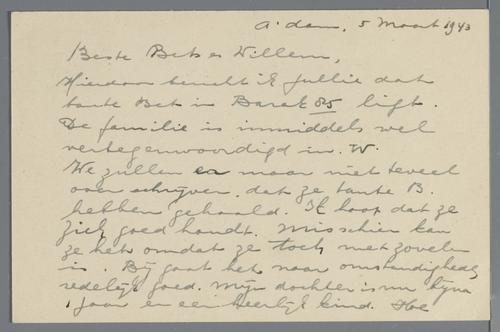 A'dam, 5 Maart 1943
Beste Bets en Willem,
Hierdoor bericht ik jullie dat
tante Bet in Barak 85 ligt.
De familie is inmiddels wel
vertegenwoordigd in W.
We zullen er maar niet teveel
over schrijven, dat ze tante B.
hebben gehaald. Ik hoop dat ze
zich goed houdt. Misschien kan
ze het omdat ze toch met zovelen
is. Bij gaat het naar omstandigheden
redelijk goed. Mijn dochter is nu bijna
1 jaar en een heerlijk kind. Hoe